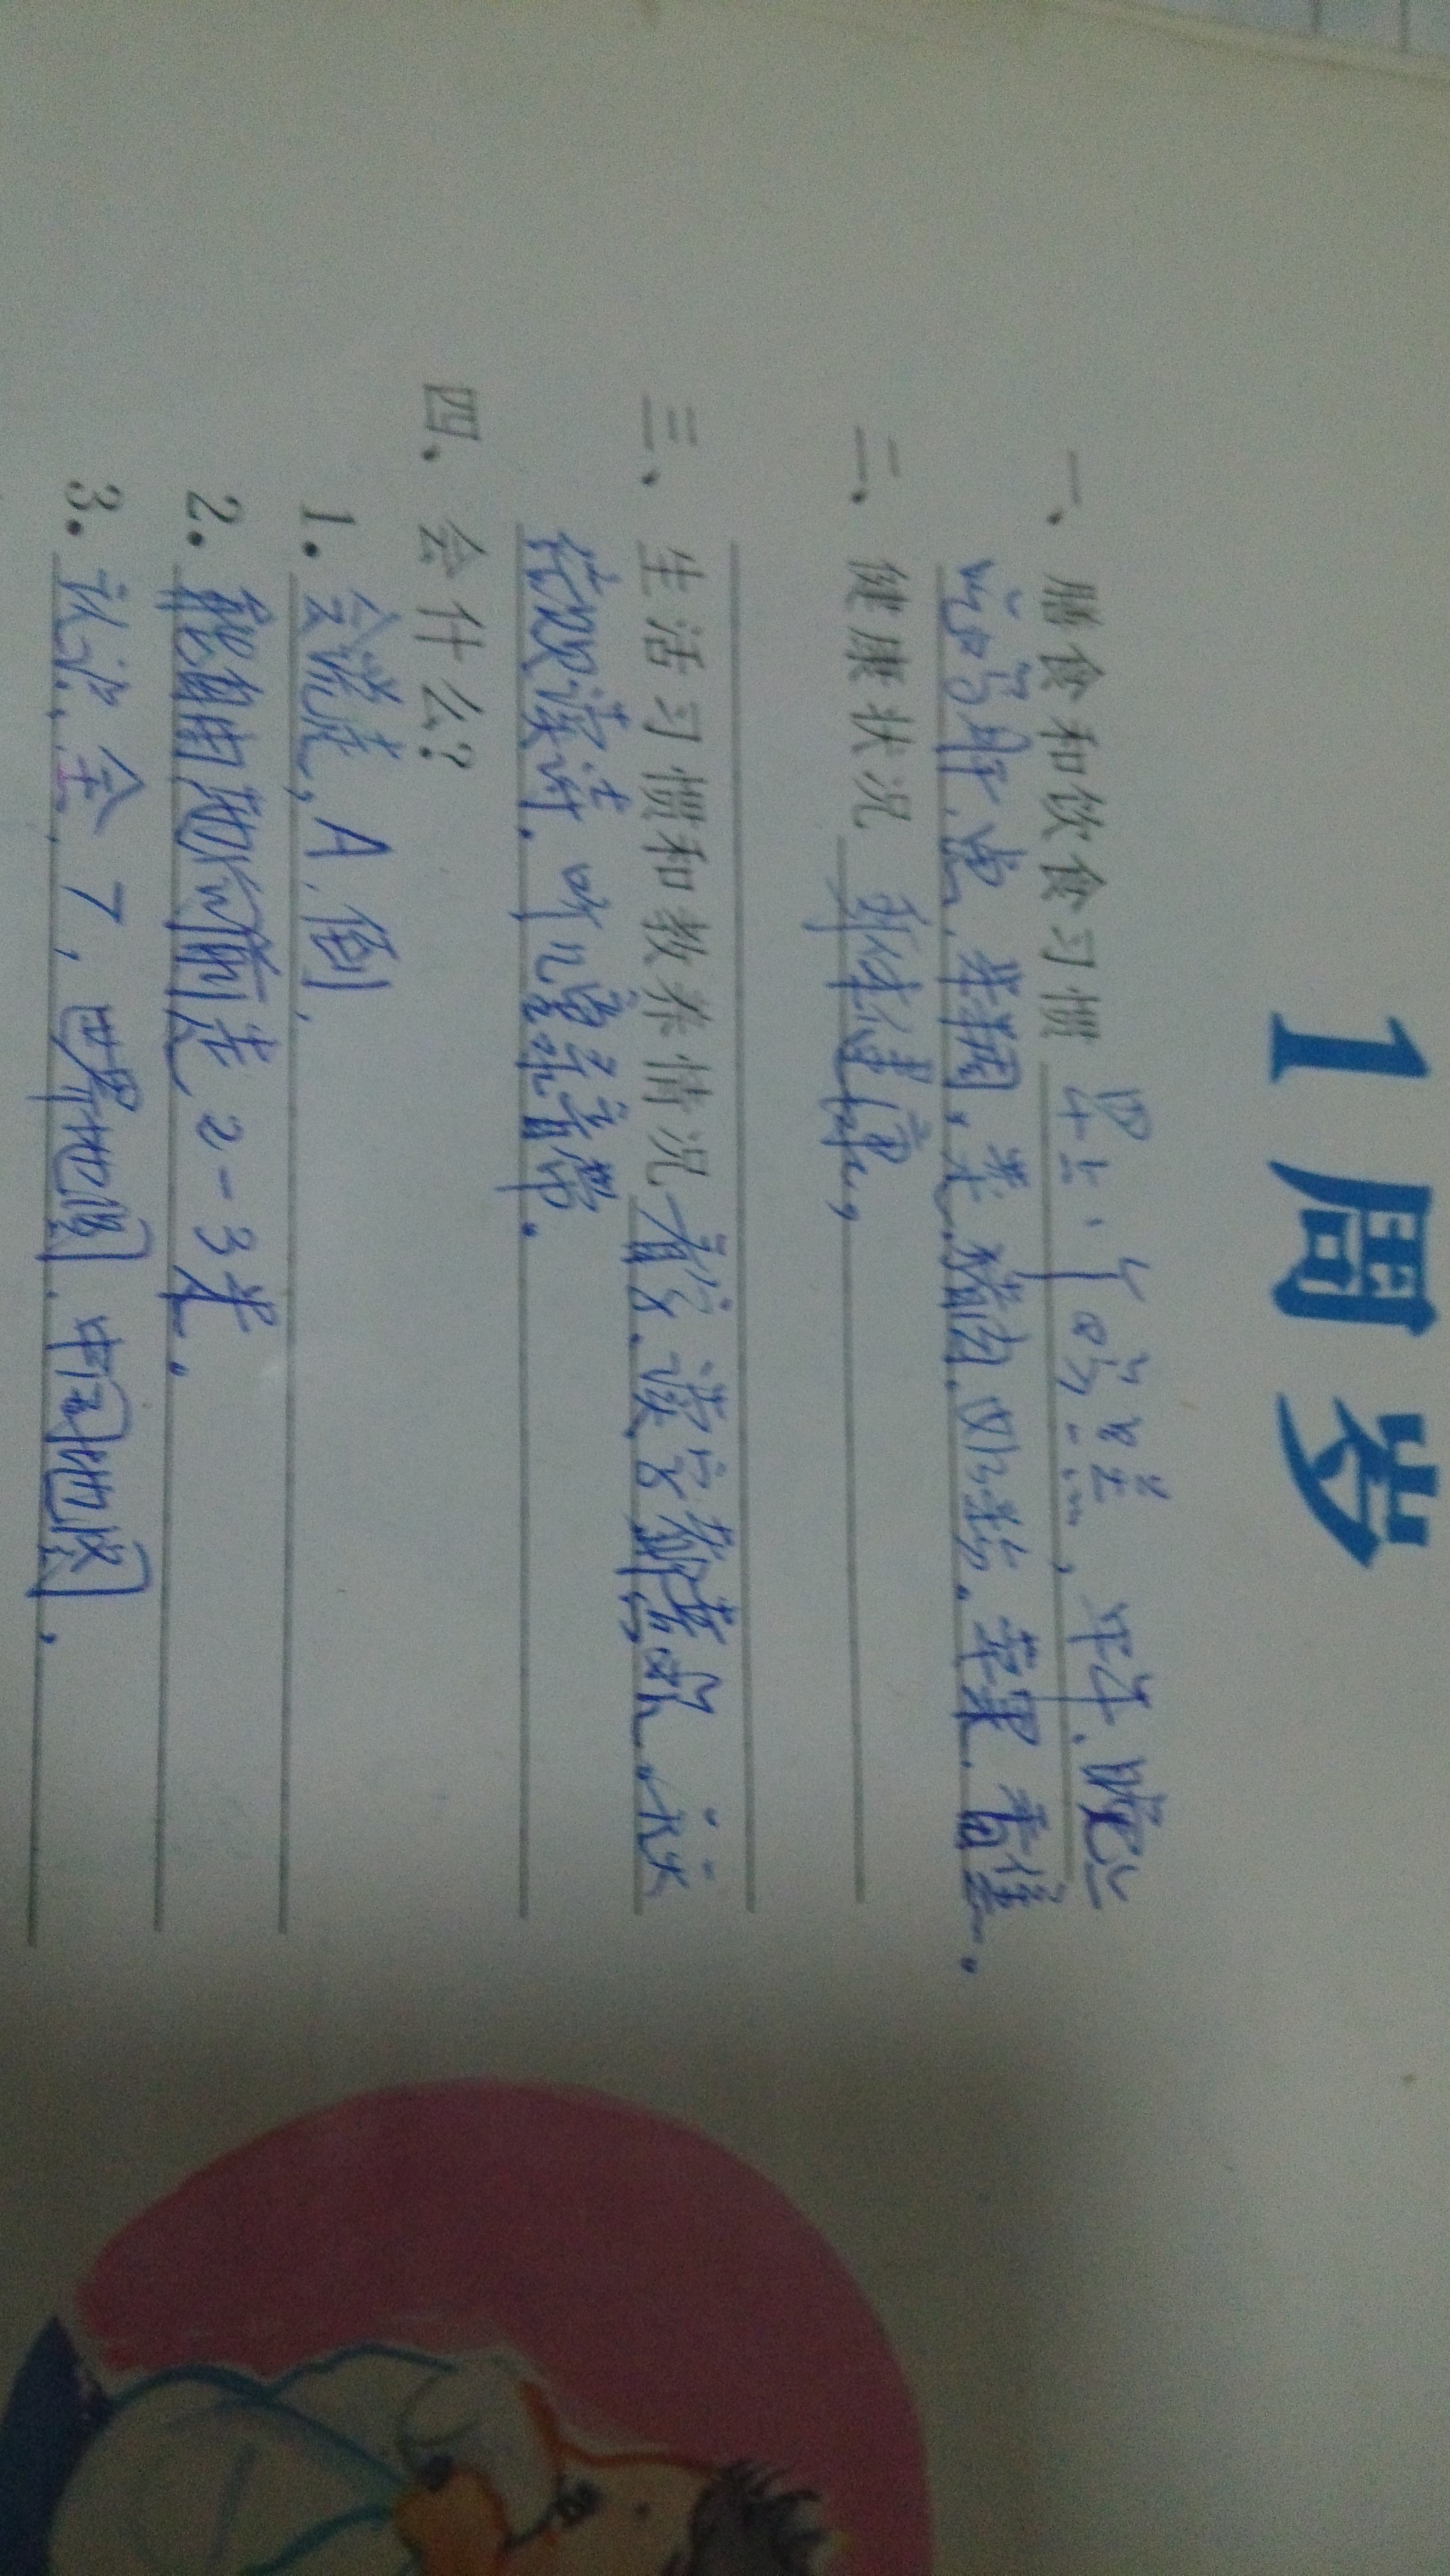 1周岁
一、膳食和饮食习惯 早上一个鸡蛋羹，中午、晚上
吃鸡肝、鱼、米粥、菜、猪肉、奶粉。苹果、香焦。
二、健康状况 身体健康，
三、生活习惯和教养情况 看字、读字都喜欢。天天
读诗. 听儿童录音带。
四、会什么？
1. 会说走，A、倒，
2. 能自由地向前走2-3米。
3. 认识，全，7，世界地图、中国地图，